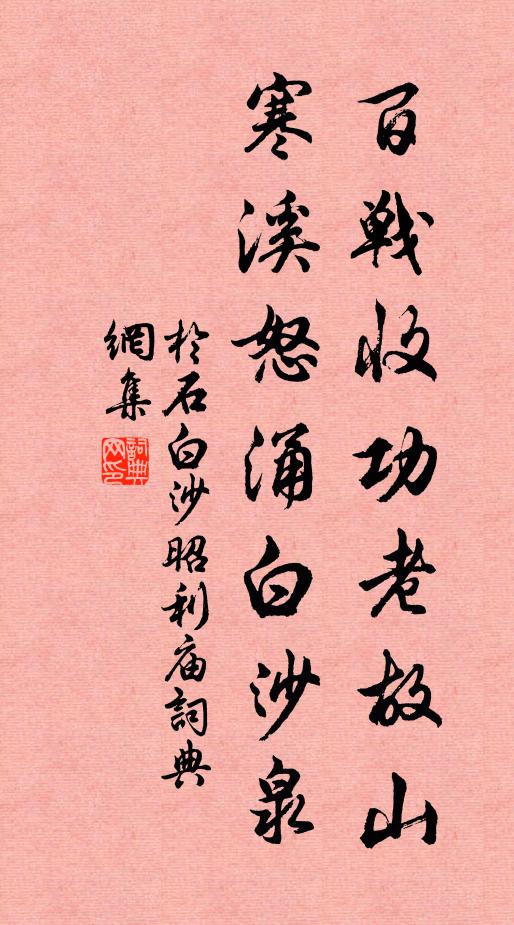 百戰收功老故山
寒溪怒涌白沙泉
於石白沙昭利庙詞典
網集
詞典網印